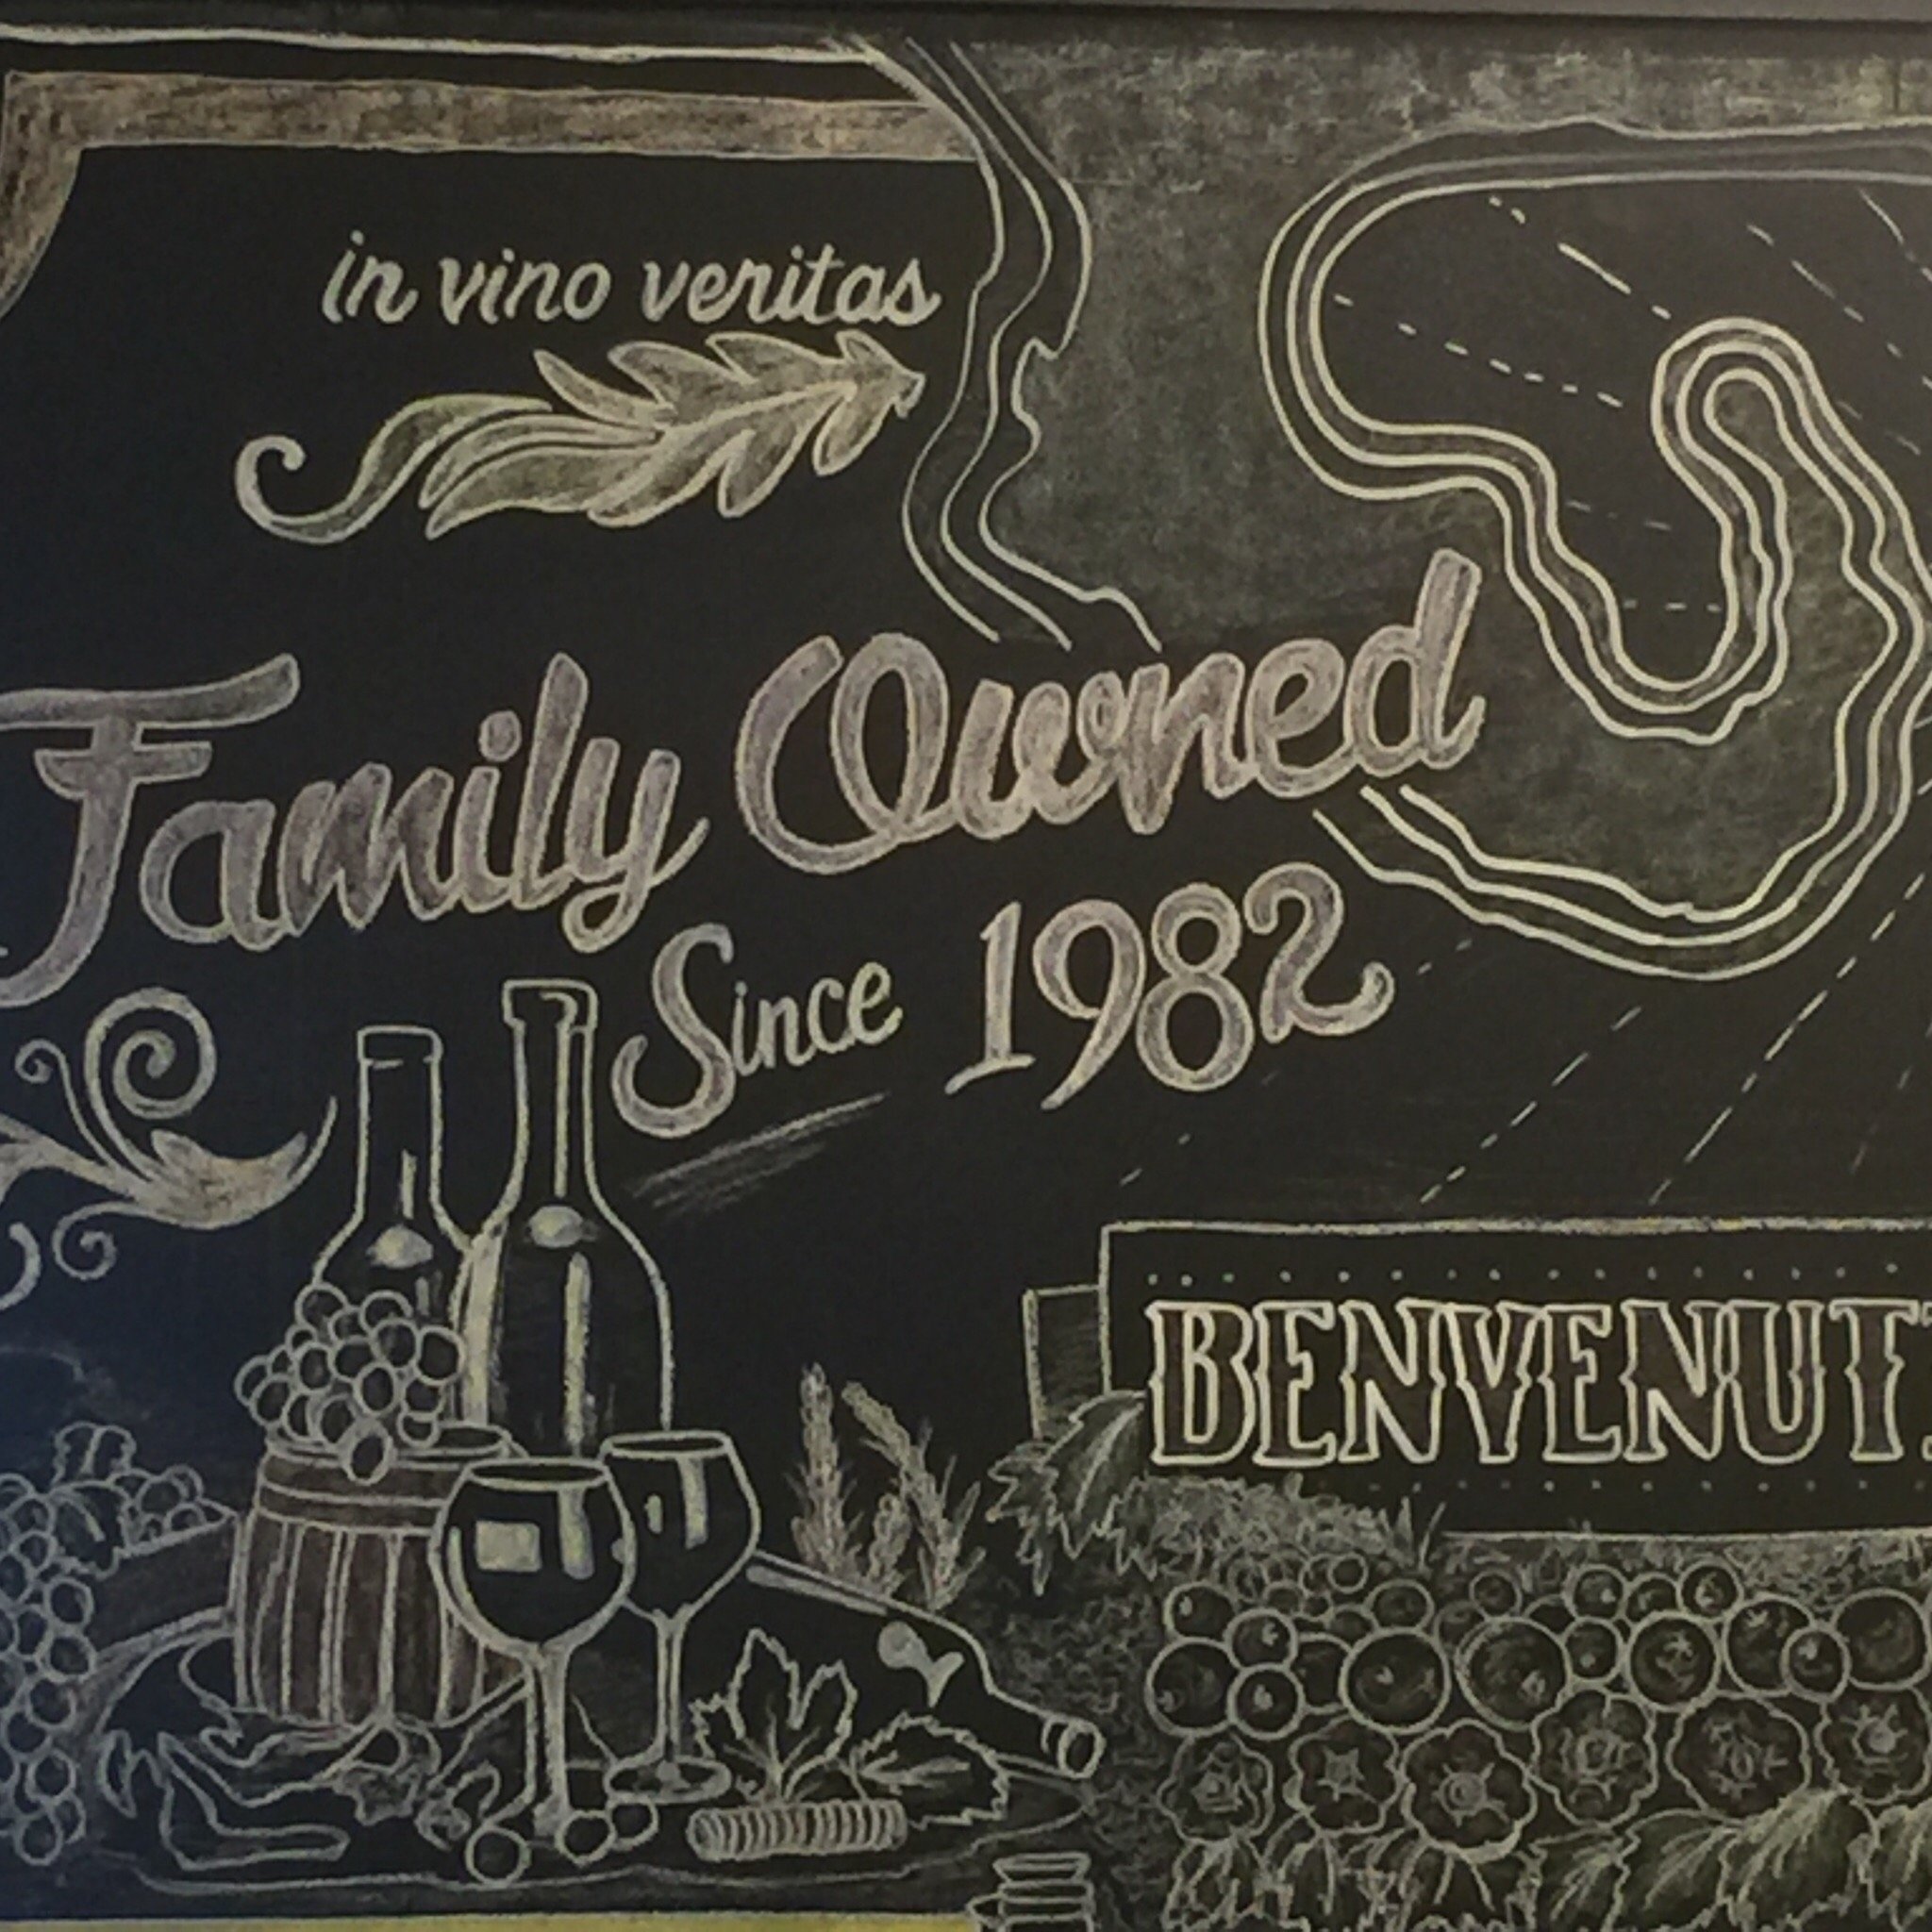 in vino veritas
Family Owned
Since 1982
BENVENUT